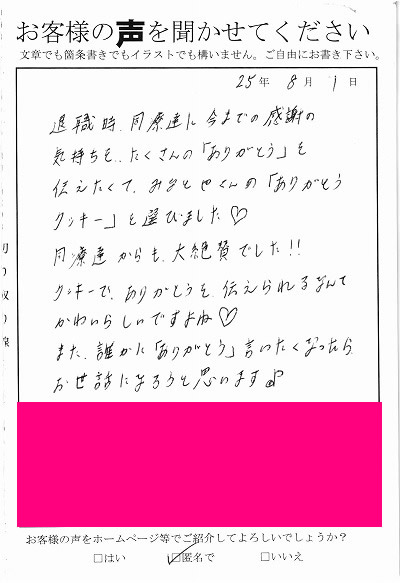 お客様の声を聞かせてください
文章でも箇条書きでもイラストでも構いません。ご自由にお書き下さい。
25年 8月 1日
退職時、同療達に今までの感謝の
気持ちを、たくさんの「ありがとう」を
伝えたくて、みなとやさんの「ありがとう
クッキー」を選びました♡
同療達からも、大絶賛でした!!
クッキーで、ありがとうを、伝えられるなんて
かわいらしいですよね♡
また、誰かに「ありがとう」言いたくなったら、
お世話になろうと思います♪
お客様の声をホームページ等でご紹介してよろしいでしょうか？
□はい ☑匿名で □いいえ